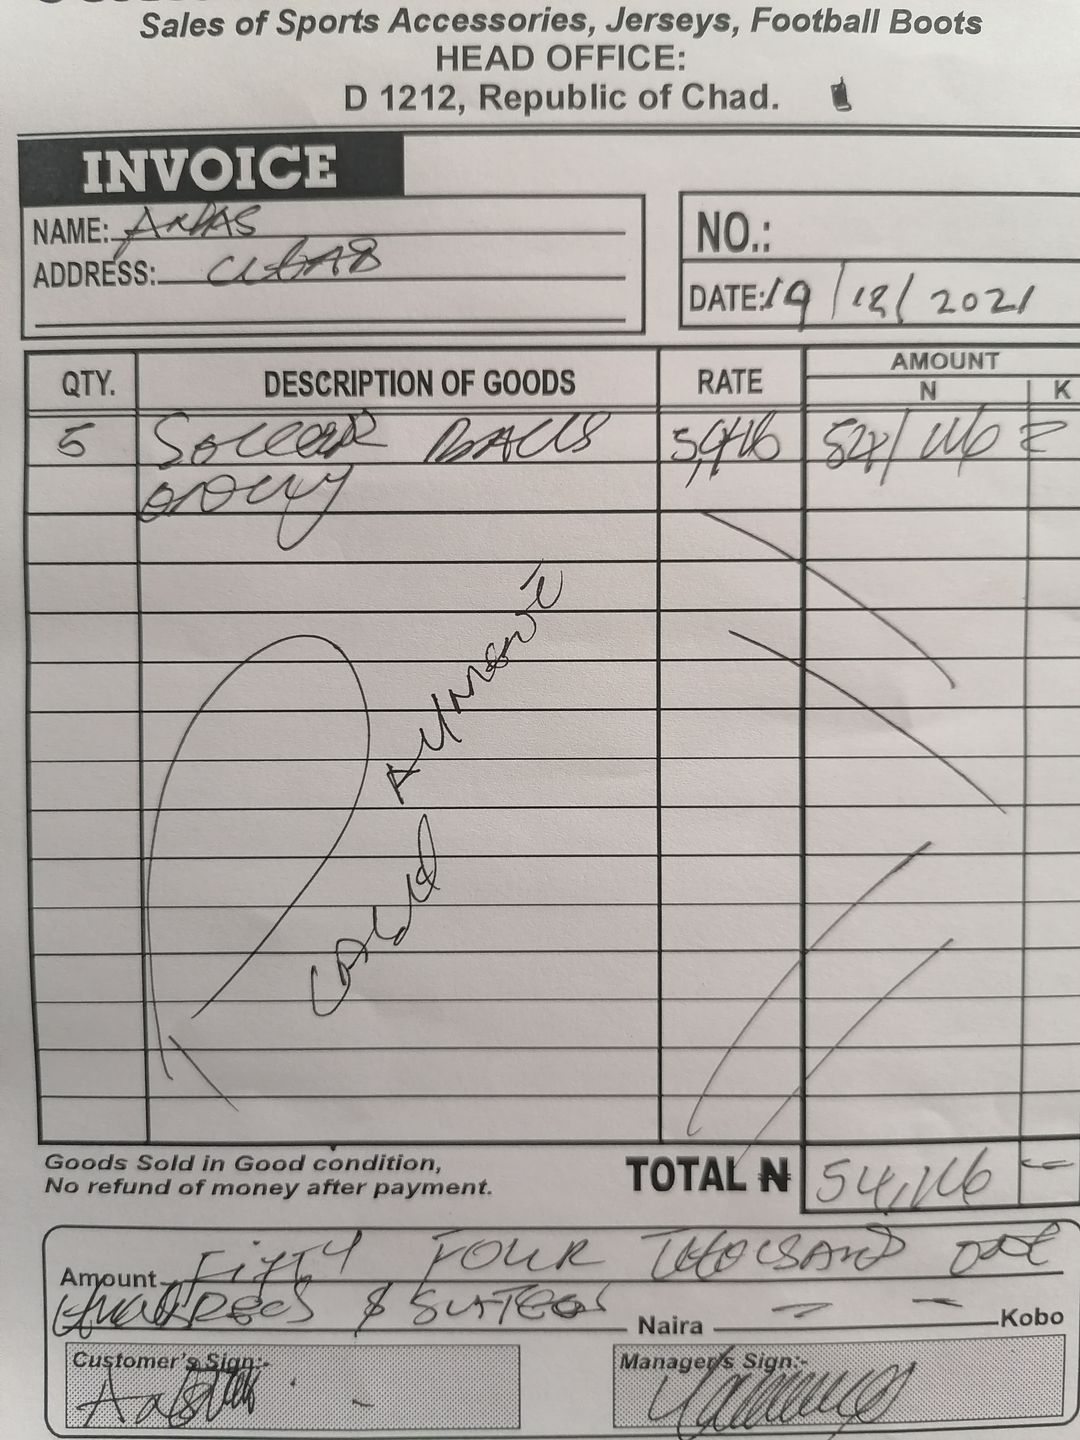 Sales of Sports Accessories, Jerseys, Football Boots
HEAD OFFICE:
D 1212, Republic of Chad.
INVOICE
NAME:
ADDRESS:
NO.:
DATE: 19/12/2021
QTY. DESCRIPTION OF GOODS RATE AMOUNT
N K
5 SOCCER BALLS
only
Goods Sold in Good condition,
No refund of money after payment.
TOTAL ₦ 54,116 =
Amount FIFTY FOUR THOUSAND ONE
HUNDRED & SIXTEEN Naira = = Kobo
Customer's Sign:- Manager's Sign:-